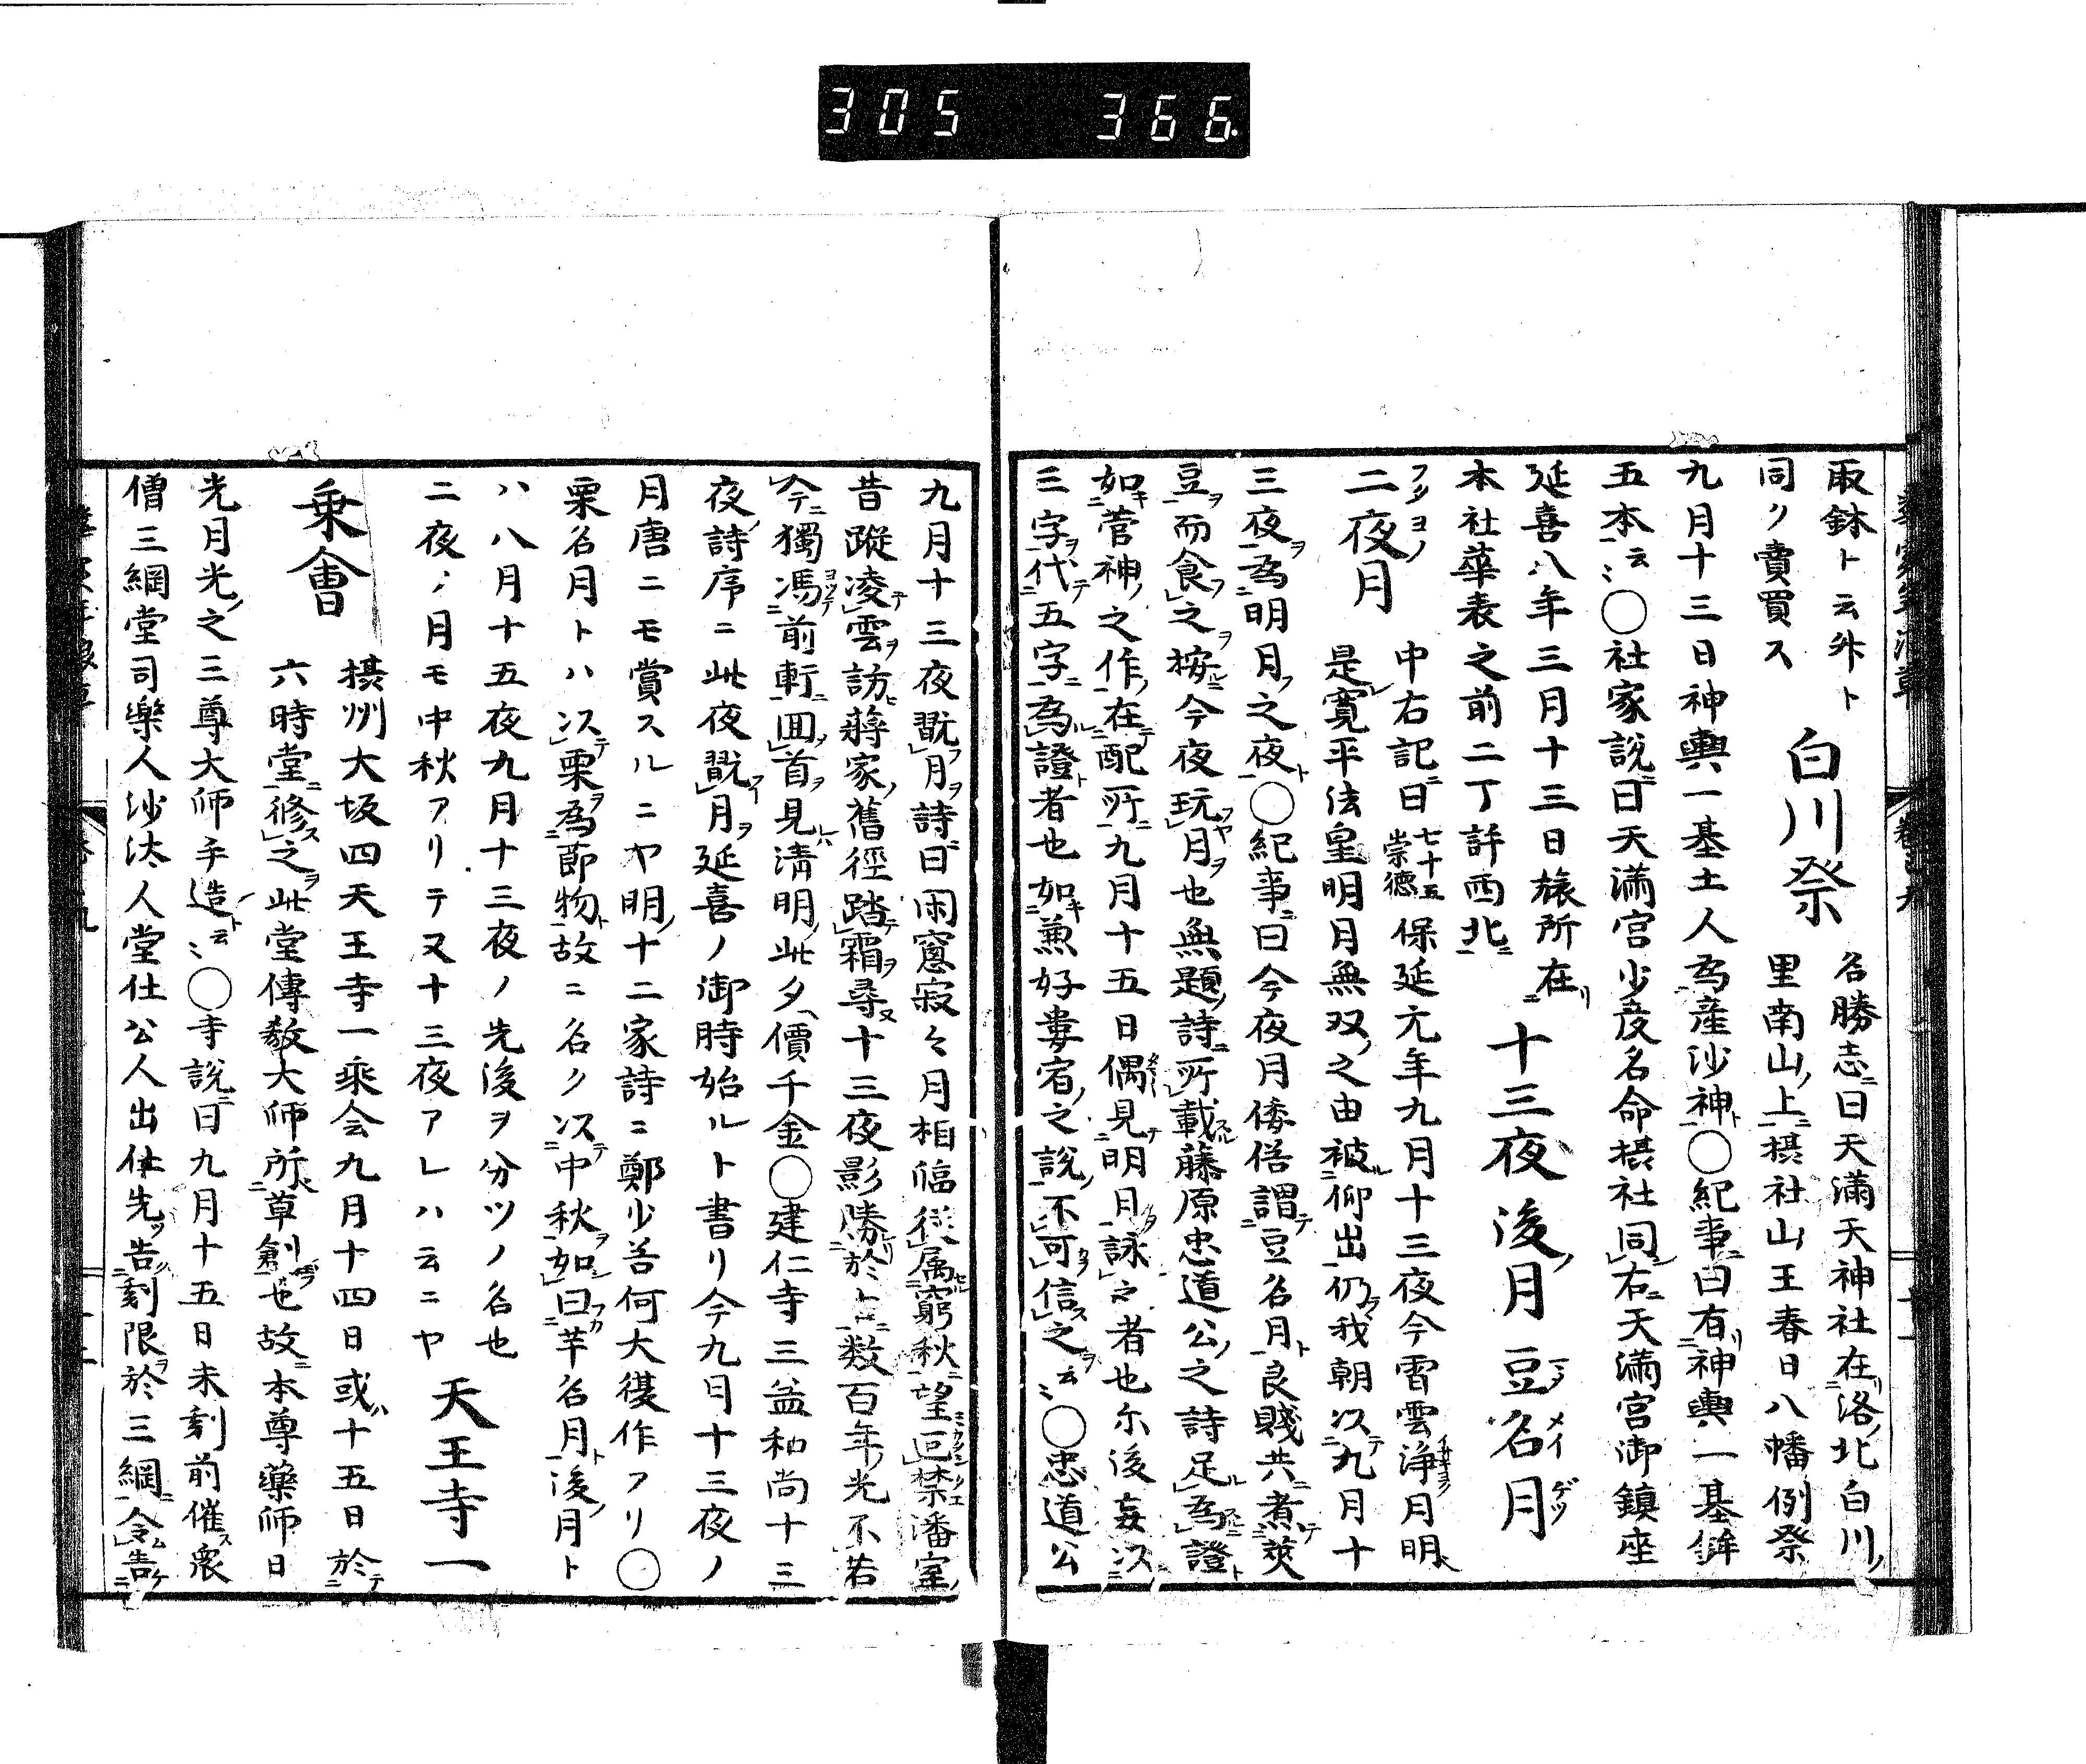 305 366
取鉢ト云外ト
同ク賣買ス
白川祭
名勝志曰天滿天神社在洛北白川
里南山上摂社山王春日八幡例祭
九月十三日神輿一基土人為産沙神○紀事曰有神輿一基鉾
五本云〻○社家説曰天滿宮少彦名命摂社同右天滿宮御鎮座
延喜八年三月十三日旅所在
本社華表之前二丁許西北
十三夜 後ノ月 豆名月
二夜月
中右記曰七十五崇德保延元年九月十三夜今宵雲浄月明
是寛平法皇明月無双之由被仰出仍我朝以九月十
三夜為明月之夜○紀事曰今夜月倭俗謂豆名月良賤共煮莢
豆而食之按今夜玩月也無題詩所載藤原忠道公之詩足為證
如菅神之作在配所九月十五日偶見明月詠之者也尓後妄以
三字代五字為證者也如兼好婁宿之説不可信之云〻○忠道公
九月十三夜翫月詩曰閑窓寂々月相臨従属窮秋望叵禁潘室
昔蹤凌雲訪蒋家舊徑踏霜尋十三夜影勝於古数百年光不若
今獨馮前軒回首見清明此夕價千金○建仁寺三益和尚十三
夜詩序ニ此夜翫月延喜ノ御時始ルト書リ今九月十三夜ノ
月唐ニモ賞スルニヤ明ノ十二家詩ニ鄭少谷何大復作アリ○
栗名月トハ以栗為節物故ニ名ク以中秋如曰芋名月後ノ月ト
ハ八月十五夜九月十三夜ノ先後ヲ分ツノ名也
二夜ノ月モ中秋アリテ又十三夜アレハ云ニヤ
天王寺一
乗會
摂州大坂四天王寺一乘会九月十四日或ハ十五日於
六時堂修之此堂傳教大師所草創也故本尊藥師日
光月光之三尊大師手造云〻○寺説曰九月十五日未刻前催衆
僧三綱堂司樂人沙汰人堂仕公人出仕先告刻限於三綱令告